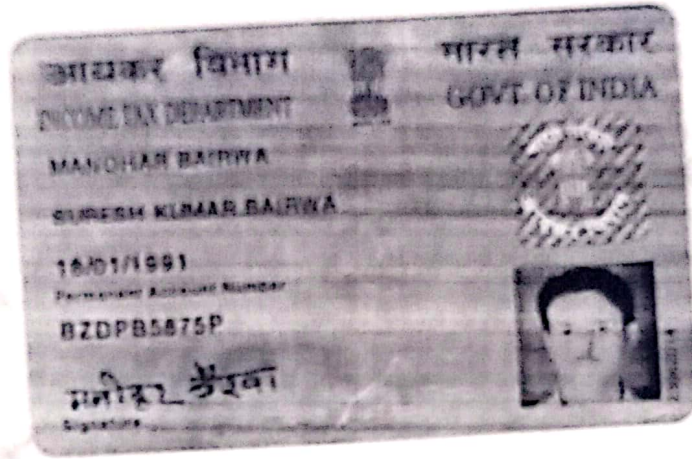 आयकर विभाग
भारत सरकार
INCOME TAX DEPARTMENT
GOVT. OF INDIA
MANOHAR BAIRWA
SURESH KUMAR BAIRWA
16/01/1991
Permanent Account Number
BZDPB5875P
मनोहर बैरवा
Signature